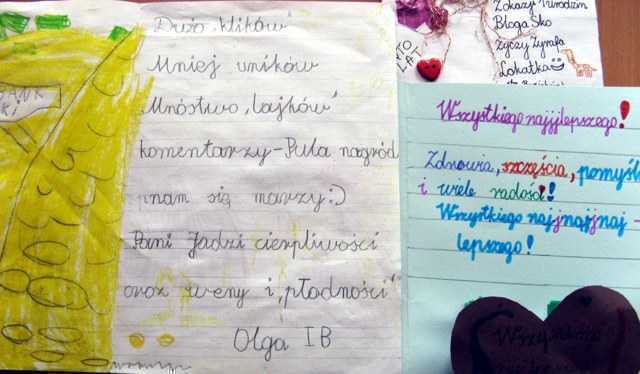 Dużo "klików"
Mniej uników
Mnóstwo "lajków"
komentarzy - Pula nagród
nam się marzy:)
Pani Jadzi cierpliwości
oraz weny i "płodności"
Olga I B
STO
LAT
Z okazji Urodzin
Bloga Sko
życzy Żyrafa
Lokatka
Wszystkiego najjlepszego!
Zdrowia, szczęścia,
i wiele radości!
Wszystkiego najjnajjnaj -
lepszego!
Wszystkiego